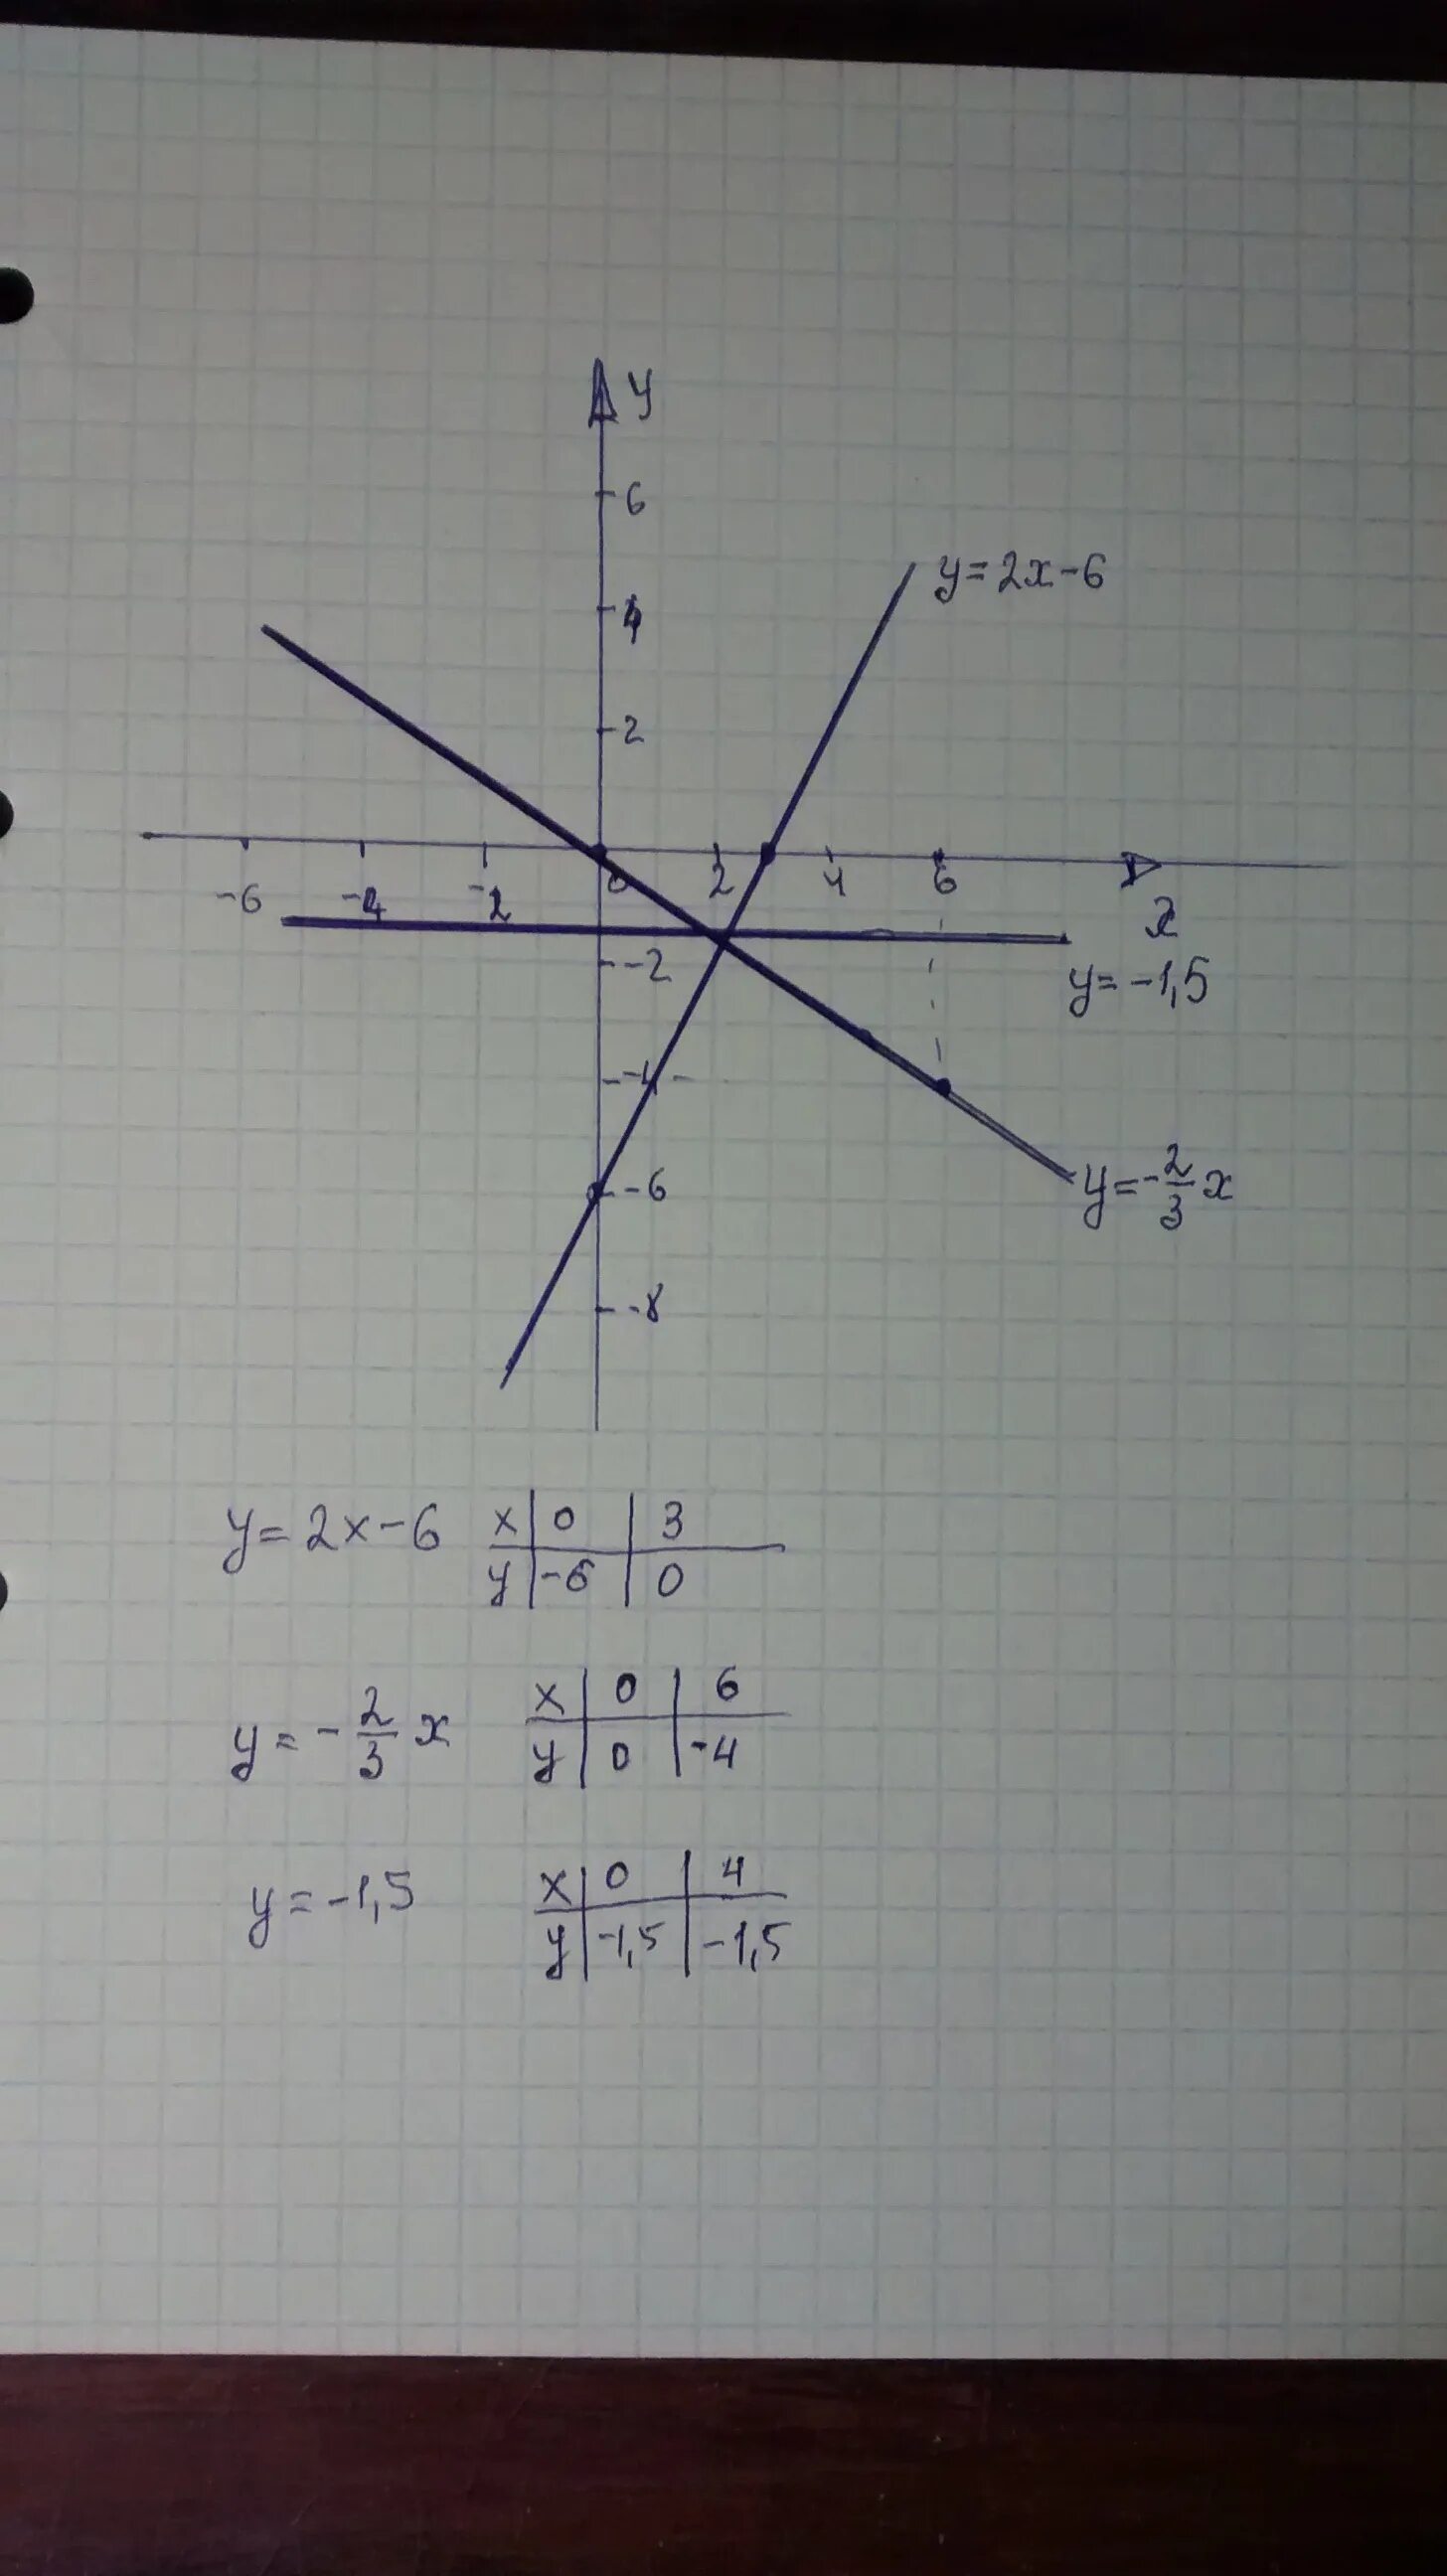 y
6
y=2x-6
4
2
-6 -4 -2 0 2 4 6
x
-2
y=-1,5
-4
-6
y=-2/3 x
-8
y=2x-6 x 0 3
y -6 0
y=-2/3 x x 0 6
y 0 -4
y=-1,5 x 0 4
y -1,5 -1,5